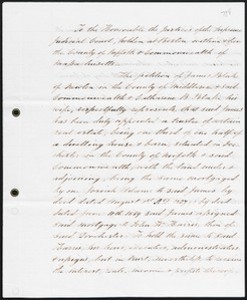 To the Honorable the Justices of the Supreme
Judicial Court, holden at Boston within & for
the County of Suffolk & Commonwealth of
Massachusetts
The petition of James Blake
of Newton in the County of Middlesex & said
Commonwealth & Catharine M. Blake his
wife, respectfully represents, that said James
has been duly appointed a trustee of certain
real estate, being one third of one half of
a dwelling house & barn, situated in
in the County of Norfolk & said
Commonwealth, with the land under &
adjoining, being the same mortgaged
by one Josiah to said James by
deed dated August 1837, & by deed
dated June 11th 1849 said James assigned
said mortgage to John H. then
of said Dorchester. To hold the same to said
his heirs, executors, administrators
& assigns, but in trust, nevertheless to receive
the interest, rents, income & profits thereof